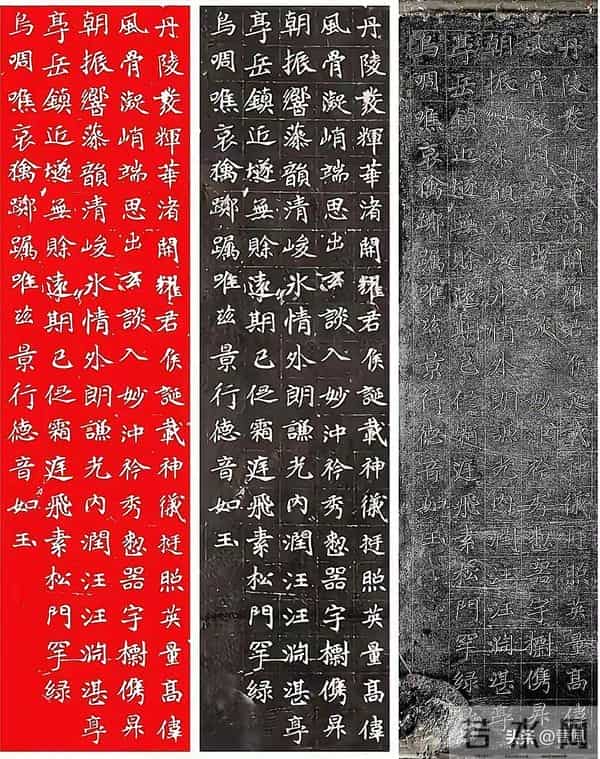 丹陵發輝華渚開耀君侯誕載神儀挺照英量高偉
風骨凝峭端思出玄談入妙沖衿秀整器宇儁昇
朝振響藻韻清峻氷情外朗謙光內潤汪汪淵湛亭
亭岳鎮近無賒遠期已促霜庭飛素松門罕緑
烏啁噍哀禽躑躅唯茲景行德音如玉
丹陵發輝華渚開耀君侯誕載神儀挺照英量高偉
風骨凝峭端思出玄談入妙沖衿秀整器宇儁昇
朝振響藻韻清峻氷情外朗謙光內潤汪汪淵湛亭
亭岳鎮近無賒遠期已促霜庭飛素松門罕緑
烏啁噍哀禽躑躅唯茲景行德音如玉
丹陵發輝華渚開耀君侯誕載神儀挺照英量高偉
風骨凝峭端思出玄談入妙沖衿秀整器宇儁昇
朝振響藻韻清峻氷情外朗謙光內潤汪汪淵湛亭
亭岳鎮近無賒遠期已促霜庭飛素松門罕緑
烏啁噍哀禽躑躅唯茲景行德音如玉
若水网